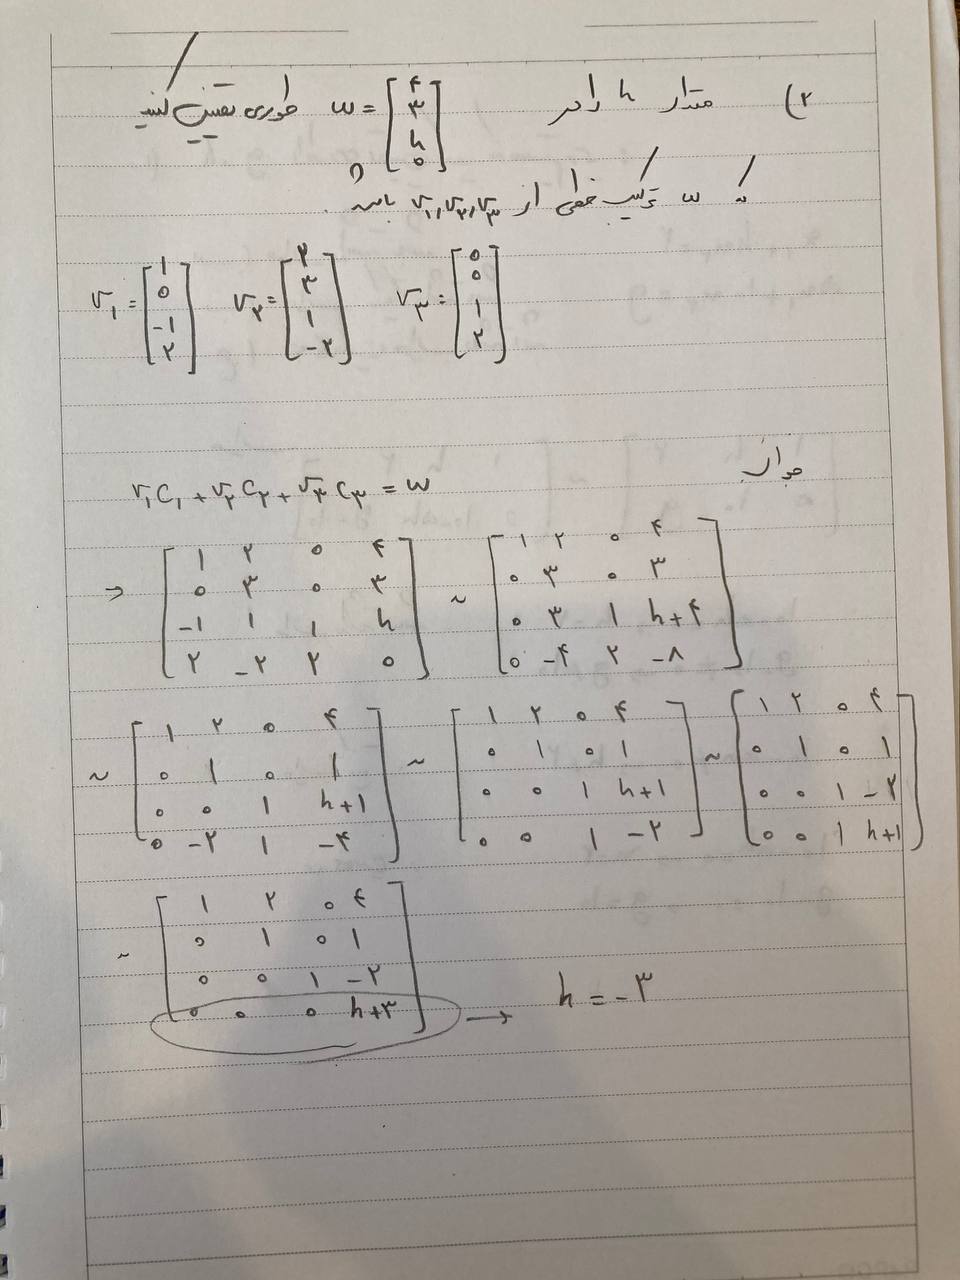 ۲) مقدار h را در w = [۴ ۳ h ۰] طوری تعیین کنید
که w ترکیب خطی از v۱, v۲, v۳ باشد.
v۱ = [۱ ۰ -۱ ۲] v۲ = [۲ ۳ ۱ -۲] v۳ = [۰ ۰ ۱ ۲]
جواب:
v۱c۱ + v۲c۲ + v۳c۳ = w
⇒ [۱ ۲ ۰ ۴ ~ [۱ ۲ ۰ ۴
۰ ۳ ۰ ۳ ۰ ۳ ۰ ۳
-۱ ۱ ۱ h ۰ ۳ ۱ h+۴
۲ -۲ ۲ ۰] ۰ -۴ ۲ -۸]
~ [۱ ۲ ۰ ۴ ~ [۱ ۲ ۰ ۴ ~ [۱ ۲ ۰ ۴
۰ ۱ ۰ ۱ ۰ ۱ ۰ ۱ ۰ ۱ ۰ ۱
۰ ۰ ۱ h+۱ ۰ ۰ ۱ h+۱ ۰ ۰ ۱ -۲
۰ -۲ ۱ -۴] ۰ ۰ ۱ -۲] ۰ ۰ ۱ h+۱]
~ [۱ ۲ ۰ ۴
۰ ۱ ۰ ۱
۰ ۰ ۱ -۲
۰ ۰ ۰ h+۳] → h = -۳